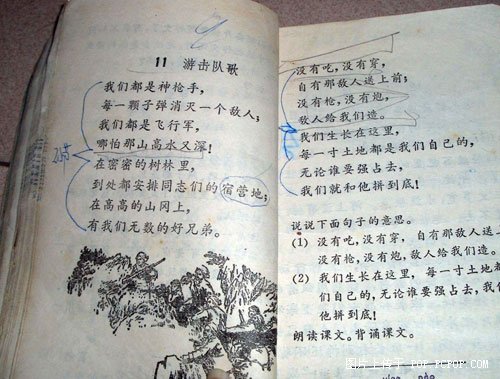 11 游击队歌
我们都是神枪手,
每一颗子弹消灭一个敌人;
我们都是飞行军,
哪怕那山高水又深!
在密密的树林里,
到处都安排同志们的宿营地;
在高高的山冈上,
有我们无数的好兄弟。
没有吃,没有穿,
自有那敌人送上前;
没有枪,没有炮,
敌人给我们造。
我们生长在这里,
每一寸土地都是我们自己的,
无论谁要强占去,
我们就和他拼到底!
说说下面句子的意思。
(1) 没有吃,没有穿, 自有那敌人送上
没有枪,没有炮,敌人给我们造。
(2) 我们生长在这里, 每一寸土地都
们自己的,无论谁要强占去,我
他拼到底!
朗读课文。背诵课文。